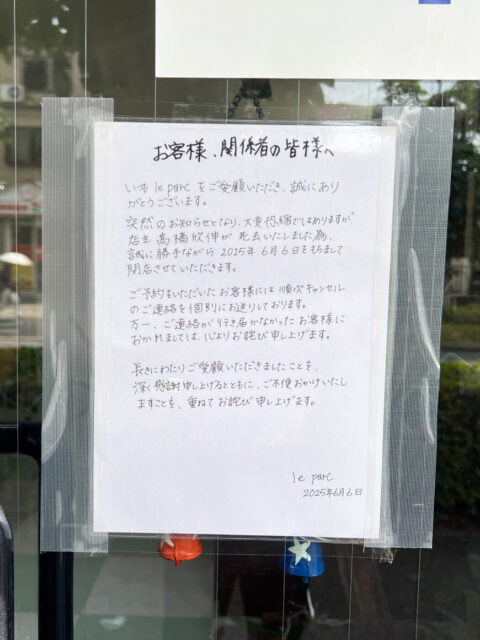 お客様、関係者の皆様へ
いつも le parc をご愛顧いただき、誠にあり
がとうございます。
突然のお知らせとなり、大変恐縮ではありますが
店主 髙橋欣伸が 死去いたしました為、
誠に勝手ながら 2025年 6月6日をもちまして
閉店させていただきます。
ご予約をいただいたお客様には 順次キャンセル
のご連絡を個別にお送りしております。
万一、ご連絡が行き届かなかったお客様に
おかれましては、心よりお詫び申し上げます。
長きにわたりご愛顧いただきましたことを、
深く感謝申し上げるとともに、ご不便おかけいたし
ますことを、重ねてお詫び申し上げます。
le parc
2025年6月6日